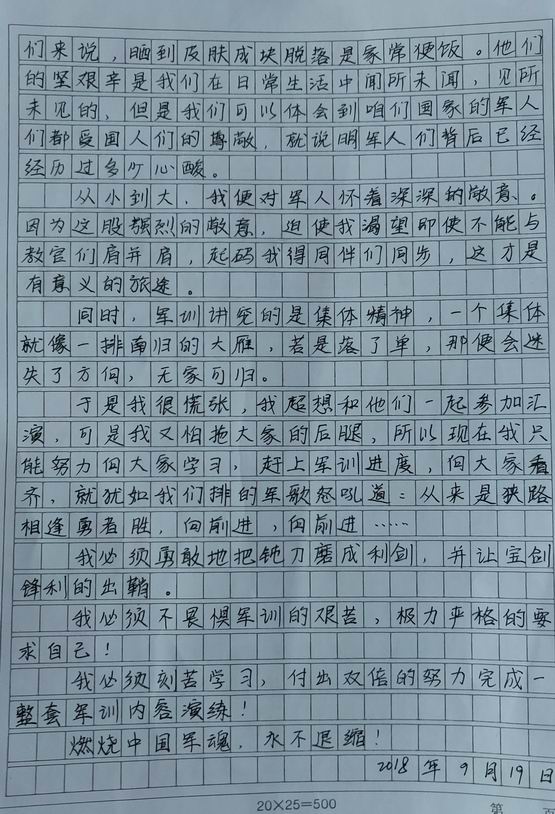 们来说，晒到皮肤成块脱落是家常便饭。他们
的坚艰辛是我们在日常生活中闻所未闻，见所
未见的，但是我们可以体会到咱们国家的军人
们都受国人们的尊敬，就说明军人们背后已经
经历过多少心酸。
从小到大，我便对军人怀着深深的敬意、。
因为这股强烈的敬意，迫使我渴望即使不能与
教官们肩并肩，起码我得同伴们同步，这才是
有意义的旅途。
同时，军训讲究的是集体精神，一个集体
就像一排南归的大雁，若是落了单，那便会迷
失了方向，无家可归。
于是我很慌张，我超想和他们一起参加汇
演，可是我又怕拖大家的后腿，所以现在我只
能努力向大家学习，赶上军训进度，向大家看
齐，就犹如我们排的军歌怒吼道：从来是狭路
相逢勇者胜，向前进，向前进……
我必须勇敢地把钝刀磨成利剑，并让宝剑
锋利的出鞘。
我必须不畏惧军训的艰苦，极力严格的要
求自己！
我必须刻苦学习，付出双倍的努力完成一
整套军训内容演练！
燃烧中国军魂，永不退缩！
2018年9月19日
20×25=500
第 页